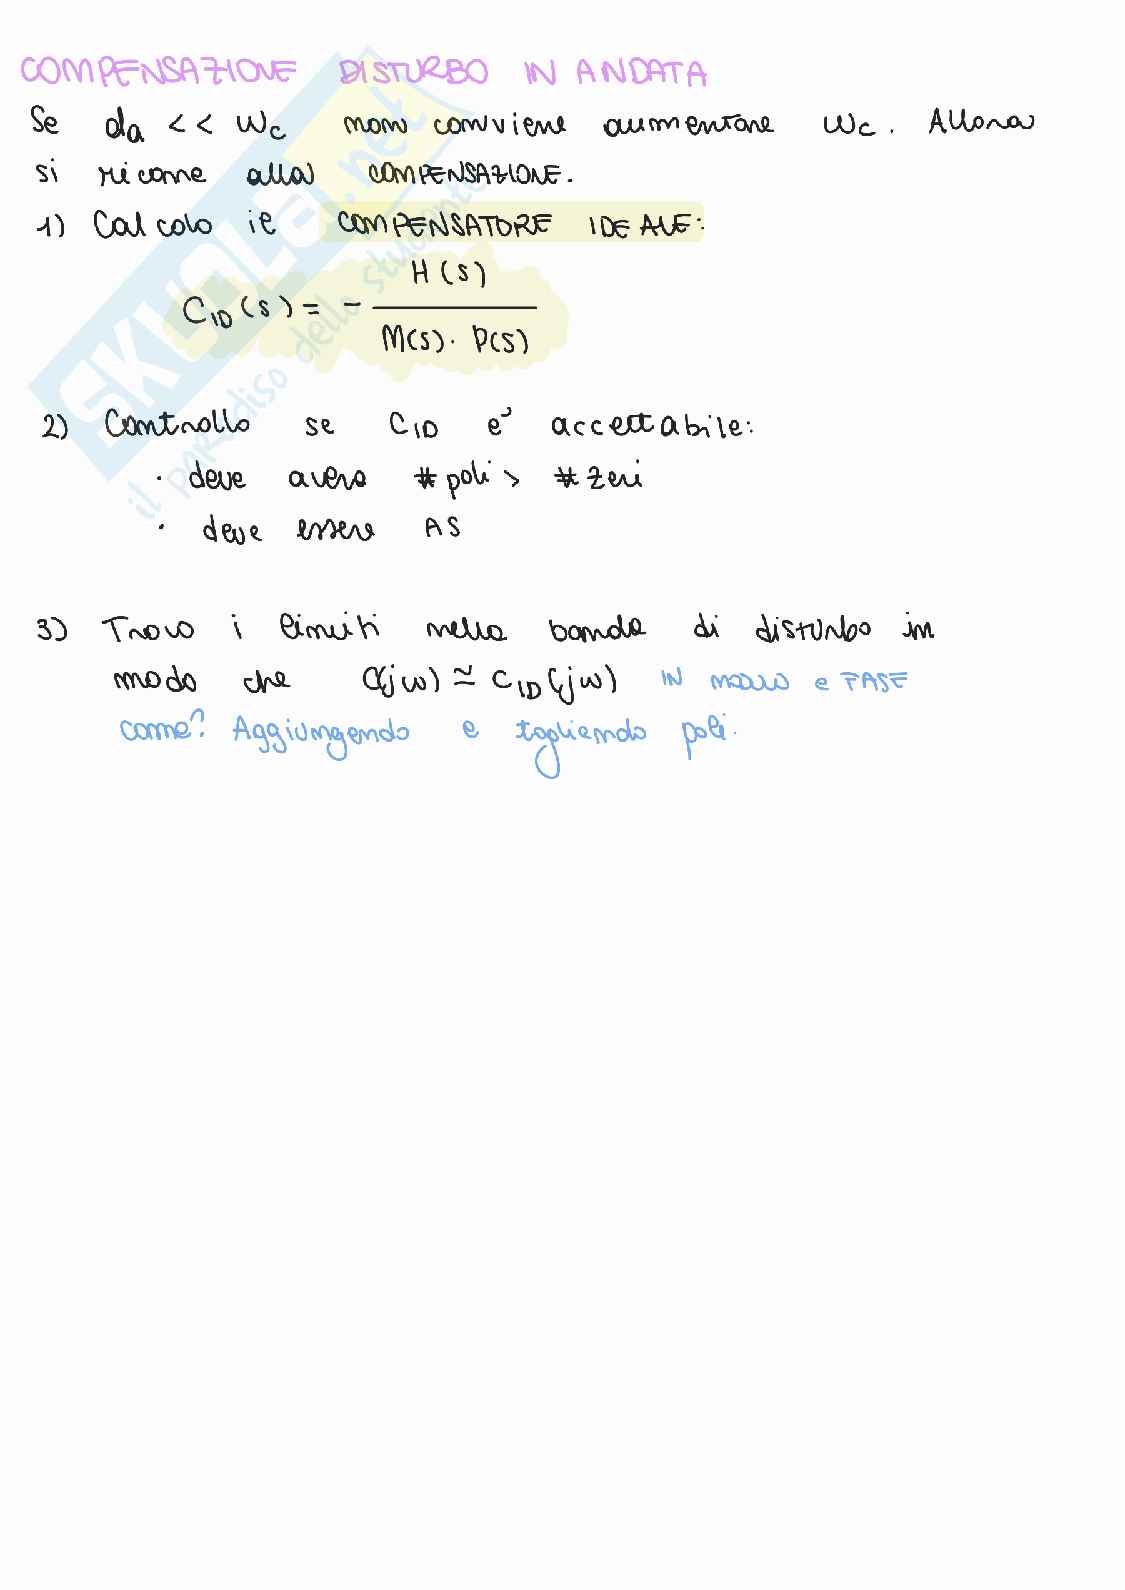 COMPENSAZIONE DISTURBO IN ANDATA
Se da << ωc non conviene aumentare ωc. Allora
si ricorre alla COMPENSAZIONE.
1) Calcolo il COMPENSATORE IDEALE:
C_ID(s) = - H(s) / M(s) · P(s)
2) Controllo se C_ID e' accettabile:
· deve avere # poli > # zeri
· deve essere AS
3) Trovo i limiti nella banda di disturbo in
modo che C(jω) ≃ C_ID(jω) IN MODULO e FASE
come? Aggiungendo e togliendo poli.
SKUOLA.net
il paradiso dello studente